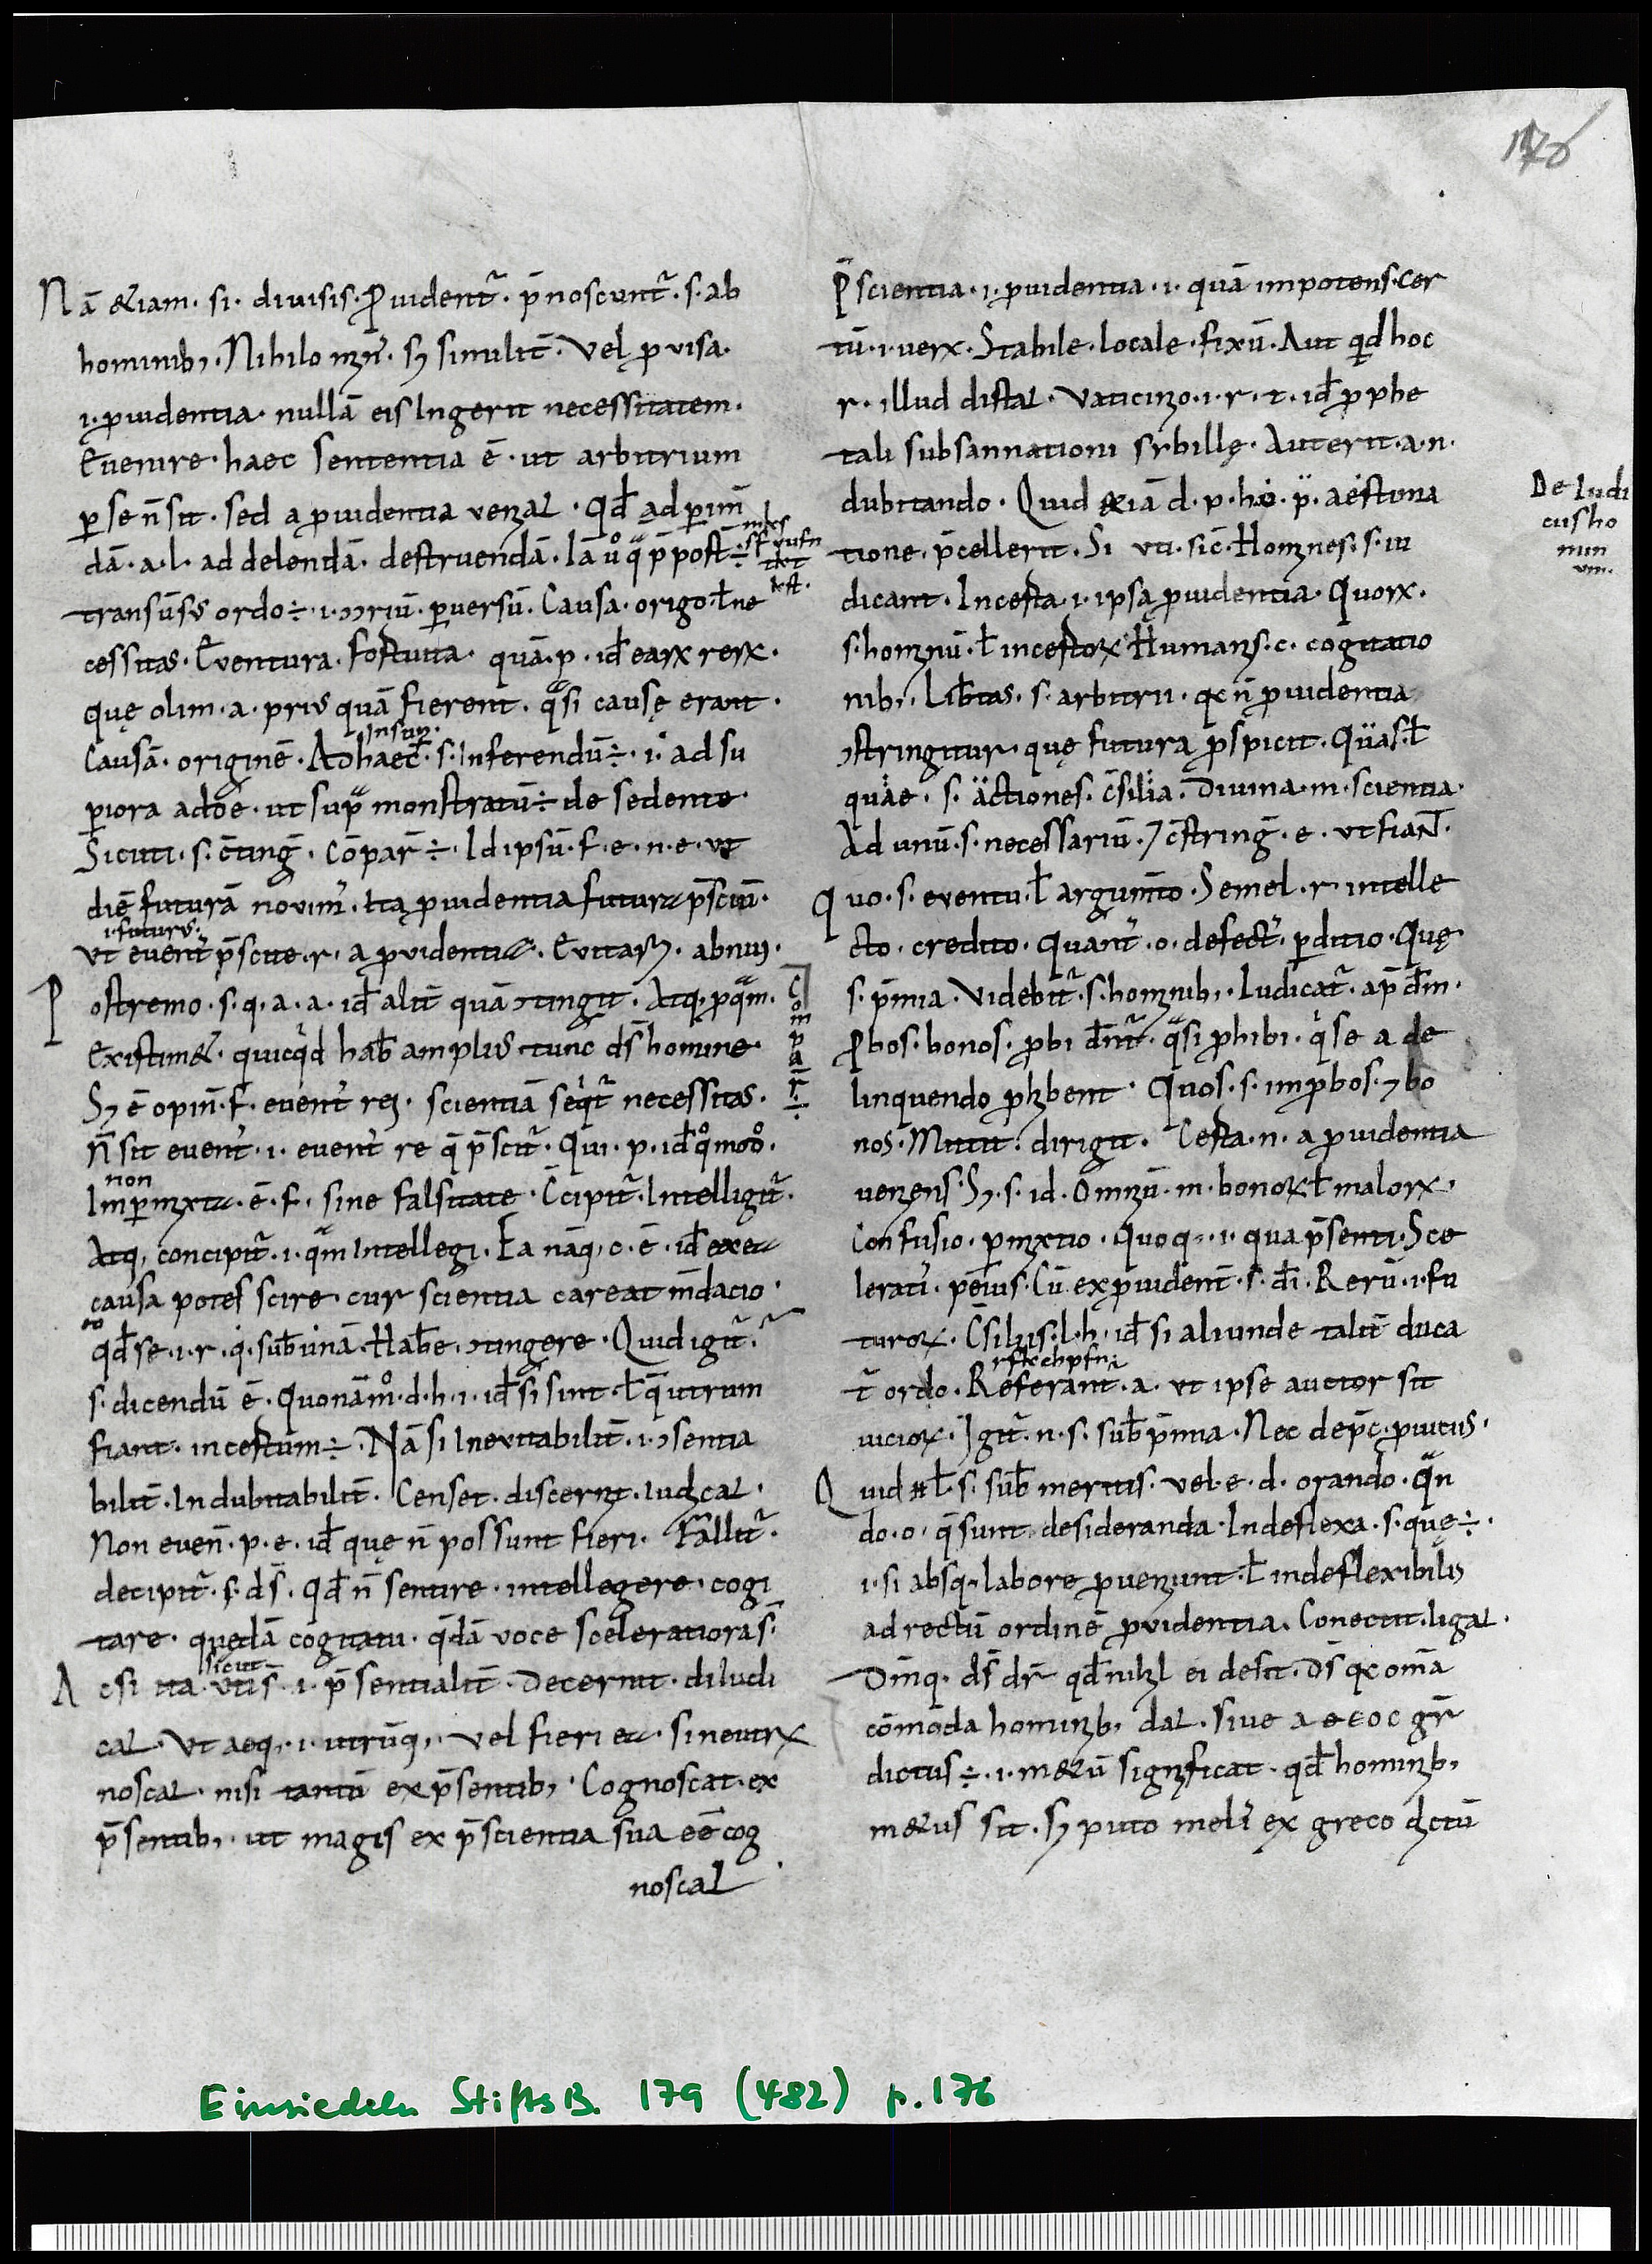 176
Nā &iam. si. diuisis. Puident᷑. p̄noscunt᷑. s. ab
hominib; Nihilo mīn. s; similit̄. Vel puisa.
.i. puidentia. nullā eis Ingerit necessitatem.
Euenire. haec sententia ē. ut arbitrium
p se n̄ sit. sed a puidentia veniat. Qđ ad perim̄
dā. a. l. ad delendā. destruendā. Iā ůo q̄ p̄post ÷
transūsus ordo ÷. i. ɔriū. puersū. Causa. origo. ł ne
cessitas. Euentura. fortuita. quā. p. iđ earx rerx.
quę olim. a. prius quā fierent. qͣsi causę erant.
Insup.
Causā. originē. Adhaec. s. Inferendū ÷. i. ad su
piora adde. ut supͣ monstratū ÷ de sedente.
Sicuti. s. c̄tinḡ. Cōpar̄ ÷. Id ipsū. f. e. n. e. vt
diē futurā novim᷒. ita puidentia futura p̄sciit̄.
.i. futurs.
vt event᷒ p̄scite. r. a prvidentia. Evitari. abnui.
Postremo. s. q. a. a. iđ alit̄ quā ɔtingit. Atq; pqͣm.
Compar̄ ÷
Existim&. quicqͥd hab̄ amplius tunc ds̄ homine.
S; ē opin̄. f. event᷒ rei. scientiā seqͥt᷑ necessitas.
n̄ sit event᷒. i. event᷒ re q̄ p̄scit᷑. Qui. p. iđ qͦmodo.
non
Impmixta. ē. f. sine falsitate. C̄cipit᷑. Intelligit᷑.
Atq; concipit᷑. i. qͣm Intellegi. Ea nāq; c. ē. iđ ex ea
causa potes scire. cur scientia careat m̄dacio.
eo
qđ se. i. r. q. sub unā. Habe. ɔtingere. Quid igit᷑.
s. dicendū ē. Quonāmͦ. d. h. i. iđ si sint. ł q̄ utrum
fiant. incertum ÷. Nā si Inevitabilit̄. i. ɔsentia
bilit̄. Indubitabilit̄. Censet. discernit. iudicat.
Non even̄. p. e. iđ quę n̄ possunt fieri. Fallit᷑.
decipit᷑. s. ds̄. Qđ n̄ sentire. intellegere. cogi
tare. quędā cogitatu. q̄dā voce sceleratiora s̄.
sicut
Ac si ita. uti s̄. i. p̄sentialit̄. Decernit. diiudi
cat. Vt aeq;. i. utrūq;. vel fieri ea. si neutrx
noscat. nisi tantū ex p̄sentib; Cognoscat. ex
p̄sentib; ut magis ex p̄scientia sua eē cog
noscat
P̄scientia. i. puidentia. i. quā impotens. Cer
tū. i. verx. Stabile. locale. fixū. Aut qͥd hoc
r. illud distat. Vaticinio. i. r. t. iđ prophe
tali subsannationi sybillę. Aut erit. a. n.
dubitando. Quid &iā d. p. h. o. p. aestima
De Iudi
ciis ho
min
um.
tione. p̄cellerit. Si uti. sic̄. Homines. s. iu
dicant. Incerta. i. ipsa puidentia. Quorx.
s. hominū. ł incertorx. Humanis. c. cogitatio
nib;. Lib̄tas. s. arbitrii. qc n̄ puidentia
ɔstringitur. quę futura pspicit. Quas. ł
quae. s. actiones. c̄silia. Diuina. m. scientia.
Ad unū. s. necessariū. 7 c̄strinḡ. e. vt fiant.
Quo. s. eventu. ł argum̄to. Semel. r. intelle
cto. credito. Quant᷒. o. defect᷒. pditio. Quę
s. p̄mia. Videbit᷑. s. hominib;. Iudicat᷑. ap̄ dm̄.
Pbos. bonos. pbi dn̄t᷑. qͣsi phibi. qͥ se a de
linquendo phibent. Quos. s. imp̄bos. 7 bo
nos. Mittit. dirigit. Certa. n. a puidentia
veniens. S;. s. id. Omniū. m. bonorx ł malorx.
Confusio. pmixtio. Quoq;. i. qua p̄senti. Sce
lerati᷒. peius. Cū ex puident̄. s. dī. Rerū. i. fu
turorx. C̄siliis. l. h. iđ si aliunde talit̄ duca
rfkchpfn
t᷑ ordo. Referant̄. a. vt ipse auctor sit
viciorx. Igit᷑. n. s. sub p̄mia. Nec dep̄c. puicus.
Quid ł. s. sub meritis. vel. e. d. orando. qͣn
do. o. q̄ sunt desideranda. Indeflexa. s. quę ÷.
.i. si absq; labore pveniunt. ł indeflexibilis
ad rectū ordinē prvidentia. Conectit. ligat.
Om̄q. ds̄ dr̄ qđ nihil ei desit. Ds̄ qc omā
cōmoda hominib; dat. siue a θεος gr̄
dictus ÷. i. m&ū significat. qđ hominib;
m&us sit. s; puto meli᷒ ex greco dictū
Einsiedeln StiftsB. 179 (482) p. 176